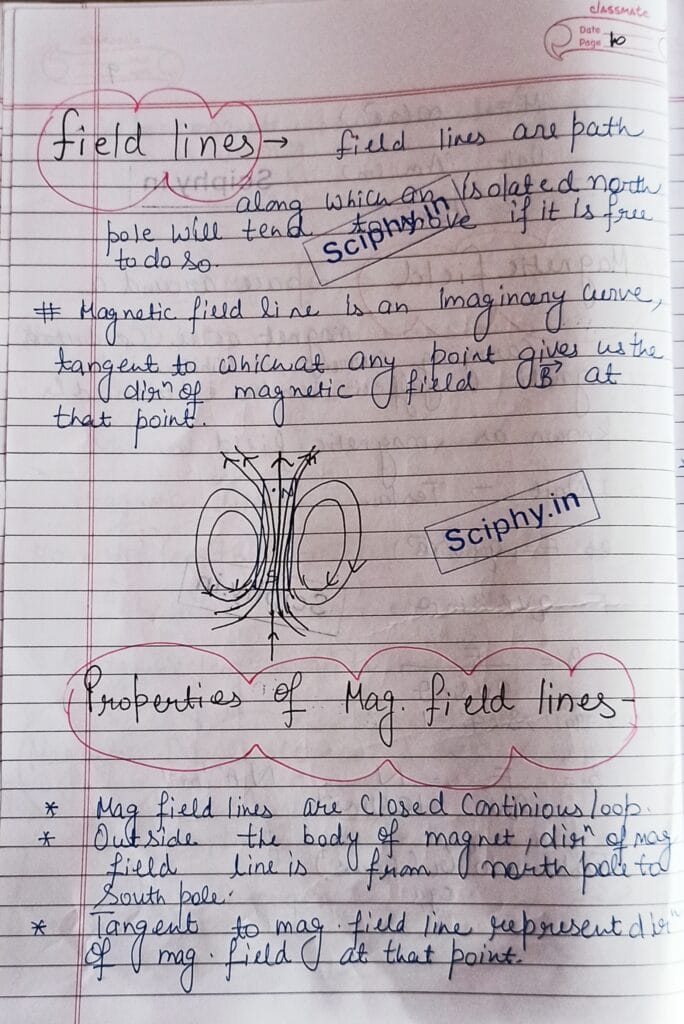 classmate
Date
Page 10
field lines → field lines are path
along which an isolated north
pole will tend to move if it is free
to do so.
Sciphy.in
# Magnetic field line is an imaginary curve,
tangent to which at any point gives us the
dirⁿ of magnetic field B⃗ at
that point.
N
S
Sciphy.in
Properties of Mag. field lines-
* Mag field lines are Closed Continious loop.
* Outside the body of magnet, dirⁿ of mag
field line is from north pole to
South pole.
* Tangent to mag. field line represent dirⁿ
of mag. field at that point.